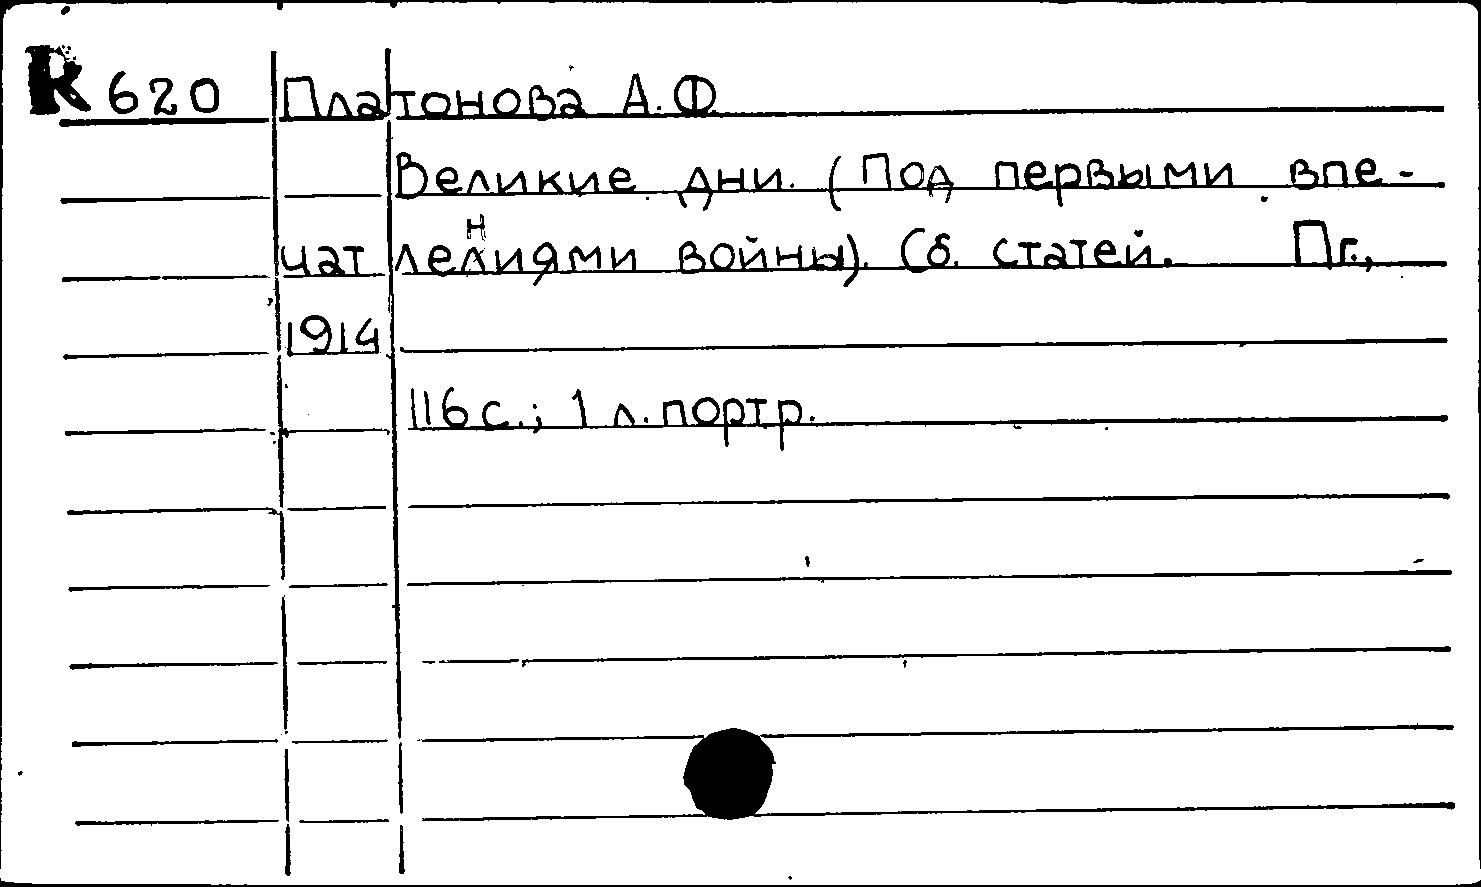 К 620 Платонова А.Ф
Великие дни. (Под первыми впе-
чатлениями войны). Сб. статей. Пг.,
1914
116 с.; 1 л. портр.